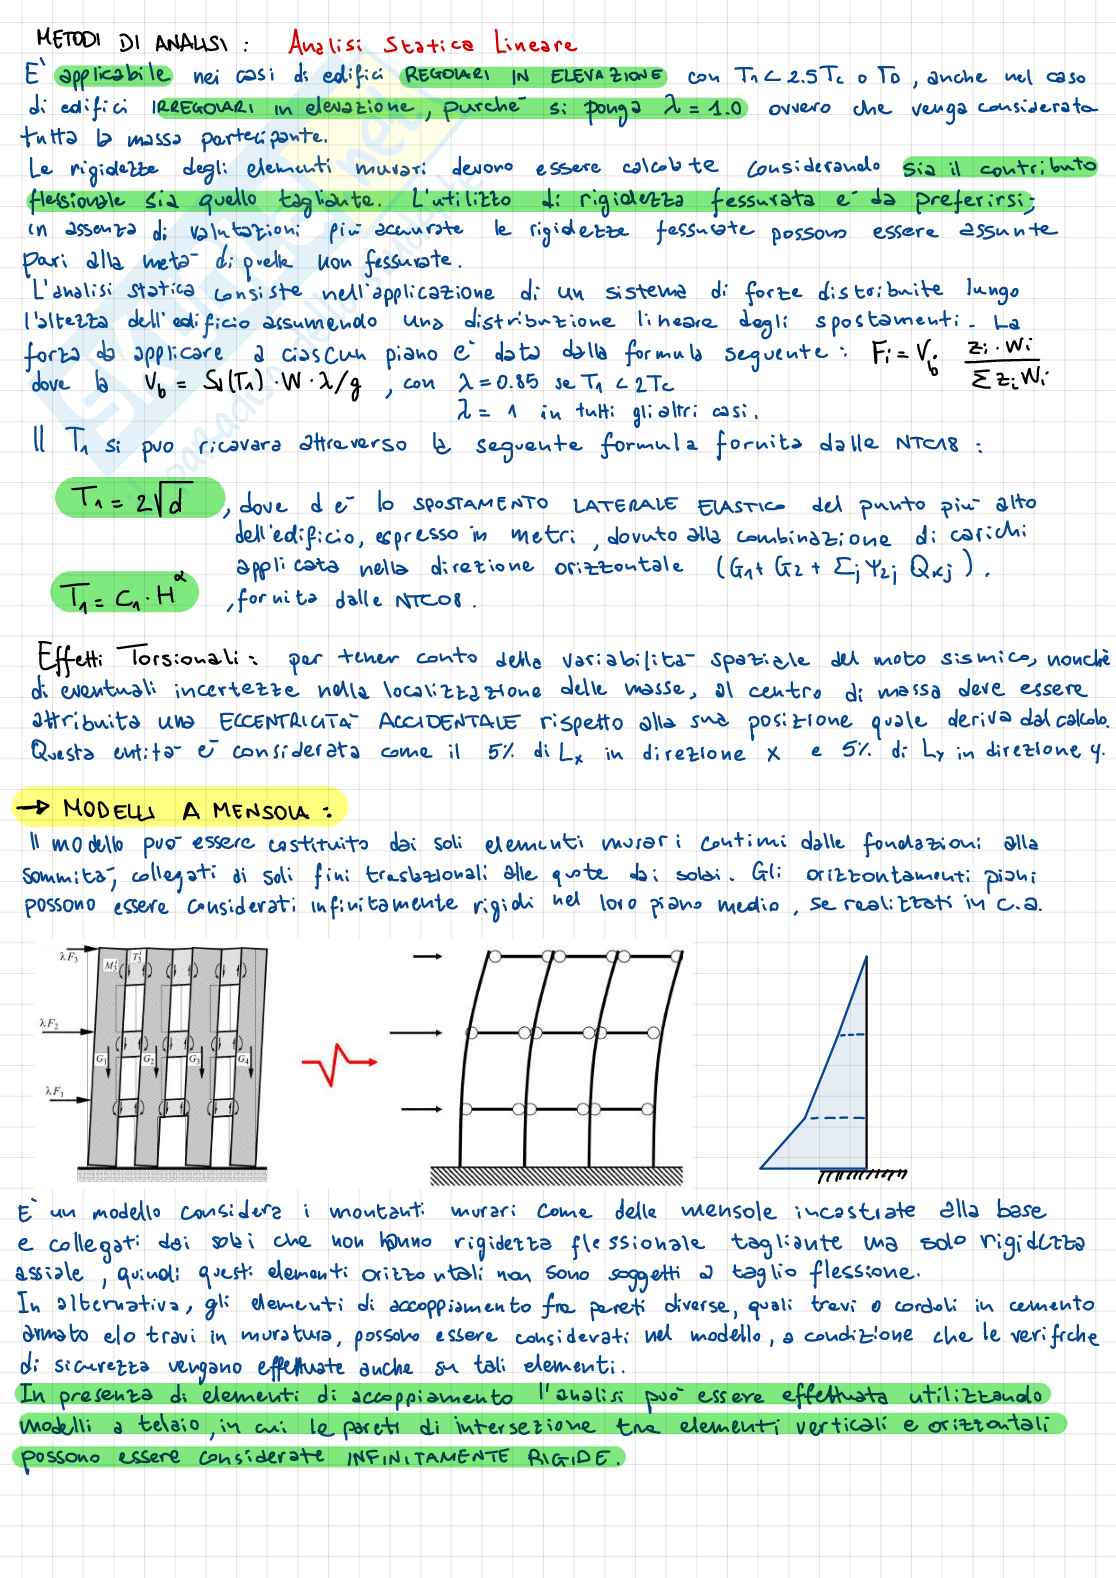 METODI DI ANALISI : Analisi Statica Lineare
E' applicabile nei casi di edifici REGOLARI IN ELEVAZIONE con T1 < 2.5Tc o TD , anche nel caso
di edifici IRREGOLARI in elevazione, purchè si ponga λ = 1.0 ovvero che venga considerata
tutta la massa partecipante.
Le rigidezze degli elementi murari devono essere calcolate considerando sia il contributo
flessionale sia quello tagliante. L'utilizzo di rigidezza fessurata è da preferirsi;
in assenza di valutazioni più accurate le rigidezze fessurate possono essere assunte
pari alla metà di quelle non fessurate.
L'analisi statica consiste nell'applicazione di un sistema di forze distribuite lungo
l'altezza dell'edificio assumendo una distribuzione lineare degli spostamenti. La
forza da applicare a ciascun piano è data dalla formula seguente : Fi = Vb · zi · Wi / Σ zi Wi
dove la Vb = Sd(T1) · W · λ/g , con λ = 0.85 se T1 < 2Tc
λ = 1 in tutti gli altri casi.
Il T1 si può ricavara attraverso la seguente formula fornita dalle NTC18 :
T1 = 2√d , dove d è lo SPOSTAMENTO LATERALE ELASTICO del punto più alto
dell'edificio, espresso in metri , dovuto alla combinazione di carichi
applicata nella direzione orizzontale (G1 + G2 + Σj Ψ2j Qkj ) .
T1 = C1 · H^α , fornita dalle NTC08 .
Effetti Torsionali : per tener conto della variabilità spaziale del moto sismico, nonchè
di eventuali incertezze nella localizzazione delle masse, al centro di massa deve essere
attribuita una ECCENTRICITÀ ACCIDENTALE rispetto alla sua posizione quale deriva dal calcolo.
Questa entità è considerata come il 5% di Lx in direzione x e 5% di Ly in direzione y.
→ MODELLI A MENSOLA :
Il modello può essere costituito dai soli elementi murari continui dalle fondazioni alla
sommità, collegati di soli fini traslazionali alle quote dei solai. Gli orizzontamenti piani
possono essere considerati infinitamente rigidi nel loro piano medio , se realizzati in c.a.
λF3 M T
λF2
G1 G2 G3 G4
λF1
E' un modello considera i montanti murari come delle mensole incastrate alla base
e collegati dai solai che non hanno rigidezza flessionale tagliante ma solo rigidezza
assiale , quindi questi elementi orizzontali non sono soggetti a taglio flessione.
In alternativa, gli elementi di accoppiamento fra pareti diverse, quali travi o cordoli in cemento
armato e/o travi in muratura, possono essere considerati nel modello, a condizione che le verifiche
di sicurezza vengano effettuate anche su tali elementi.
In presenza di elementi di accoppiamento l'analisi può essere effettuata utilizzando
modelli a telaio, in cui le pareti di intersezione tra elementi verticali e orizzontali
possono essere considerate INFINITAMENTE RIGIDE.